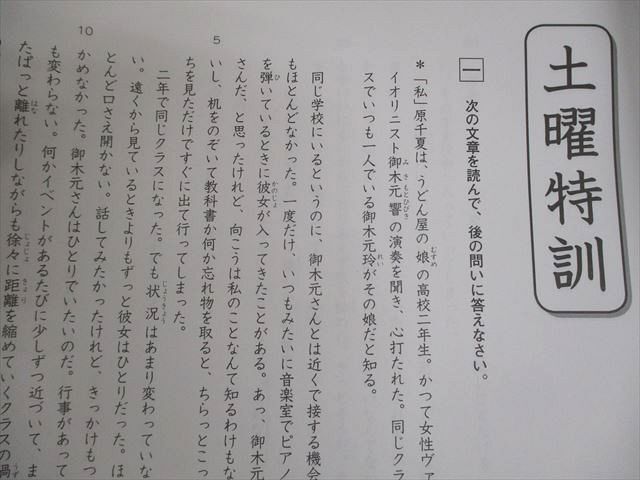 土曜特訓
一 次の文章を読んで、後の問いに答えなさい。
＊「私」原千夏は、うどん屋の娘の高校二年生。かつて女性ヴァ
イオリニスト御木元響の演奏を聞き、心打たれた。同じクラ
スでいつも一人でいる御木元玲がその娘だと知る。
同じ学校にいるというのに、御木元さんとは近くで接する機会
もほとんどなかった。一度だけ、いつもみたいに音楽室でピアノ
を弾いているときに彼女が入ってきたことがある。あっ、御木元
さんだ、と思ったけれど、向こうは私のことなんて知るわけもな
いし、机をのぞいて教科書か何か忘れ物を取ると、ちらっとこっ
ちを見ただけですぐに出て行ってしまった。
二年で同じクラスになった。でも状況はあまり変わっていな
い。遠くから見ているときよりもずっと彼女はひとりだった。ほ
とんど口さえ開かない。話してみたかったけれど、きっかけもつ
かめなかった。御木元さんはひとりでいたいのだ。行事があって
も変わらない。何かイベントがあるたびに少しずつ近づいて、ま
たぱっと離れたりしながらも徐々に距離を縮めていくクラスの渦
5
10